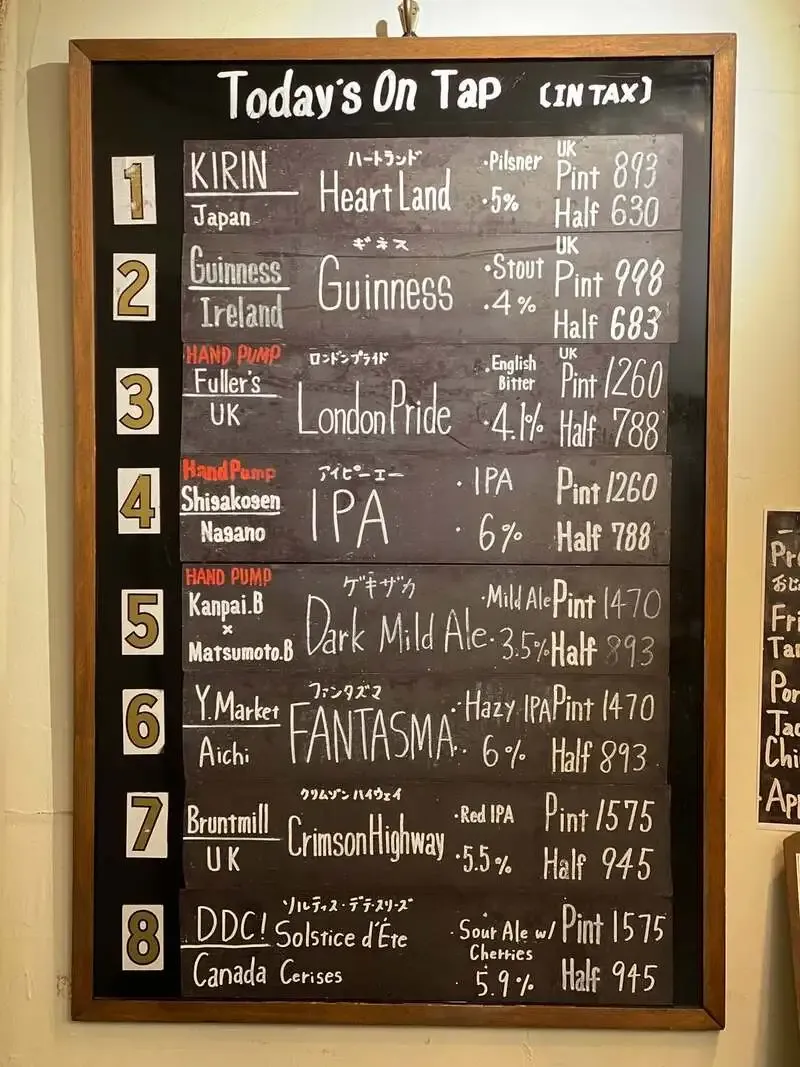 Today's On Tap (IN TAX)
1
KIRIN
Japan
ハートランド
Heart Land
・Pilsner
・5%
UK
Pint 893
Half 630
2
Guinness
Ireland
ギネス
Guinness
・Stout
・4%
UK
Pint 998
Half 683
3
HAND PUMP
Fuller's
UK
ロンドンプライド
London Pride
・English
Bitter
・4.1%
UK
Pint 1260
Half 788
4
Hand Pump
Shigakogen
Nagano
アイピーエー
IPA
・IPA
・6%
Pint 1260
Half 788
5
HAND PUMP
Kanpai.B
×
Matsumoto.B
ゲキザカ
Dark Mild Ale
・Mild Ale
・3.5%
Pint 1470
Half 893
6
Y.Market
Aichi
ファンタズマ
FANTASMA
・Hazy IPA
・6%
Pint 1470
Half 893
7
Bruntmill
UK
クリムゾンハイウェイ
Crimson Highway
・Red IPA
・5.5%
Pint 1575
Half 945
8
DDC!
Canada
ソルティス・デテ・スリーズ
Solstice d'Éte
Cerises
・Sour Ale w/
Cherries
5.9%
Pint 1575
Half 945
Fri
Por
Chi